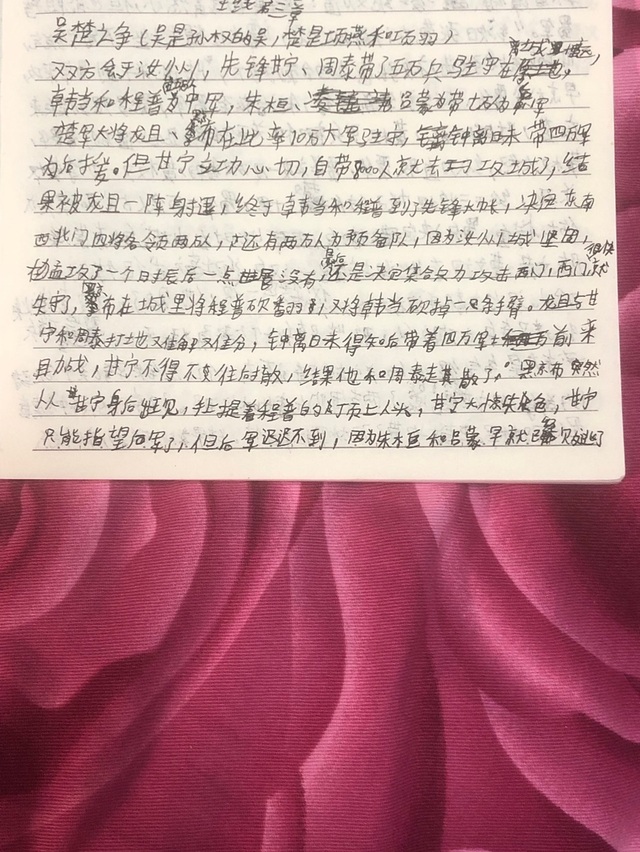 主线第三章
吴楚之争(吴是孙权的吴,楚是项燕和项羽)
离城墨里远,
双方会于汝州,先锋甘宁、周泰带了五万兵马驻守在
韩当和程普为中军,朱桓、吕蒙为带十万为军
楚军大将龙且、布在此率10万大军驻守,钟离日未带四万军
为后接。但甘宁立功心切,自带8000人就去攻城,结
果被龙且一阵射退,终于韩当和程普到了先锋大帐,决定东南
西北门四将各领两队,还有两万人为预备队,因为汝州城坚固,
猛攻了一个时辰后一点进展没有,最后还是决定集合兵力攻击西门,西门很快就
失守了,布在城里将程普砍翻,又将韩当砍掉一只条手臂。龙且与甘
宁和周泰打地又难解又难分,钟离日未得知后带着四万军士前来
助战,甘宁不得不变往后撤,结果他和周泰走其散了,黑布突然
从甘宁身后出现,手提着程普的项上人头,甘宁大惊失色,甘宁
只能指望后军了,但后军迟迟不到,因为朱桓和吕蒙早就已